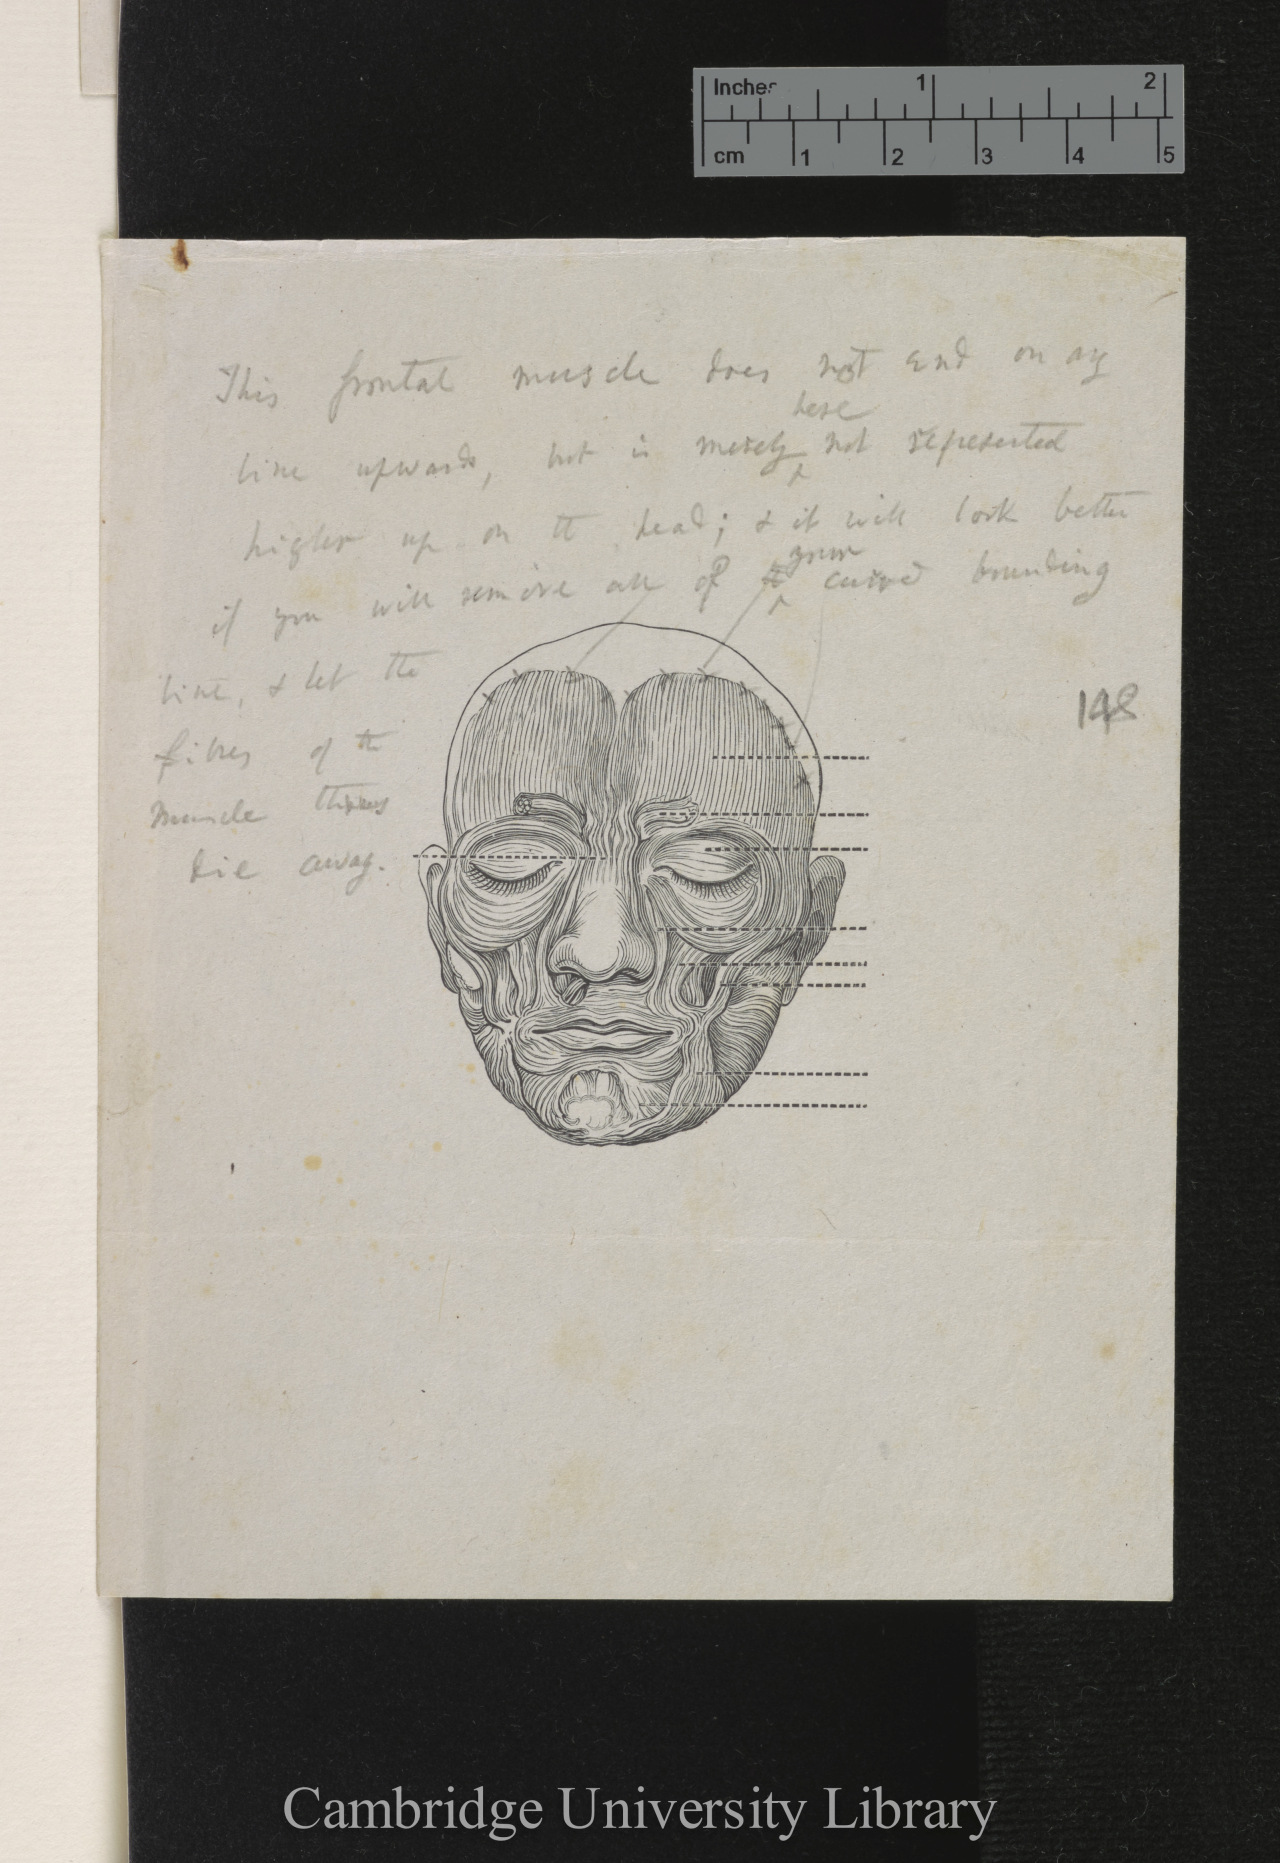 Inches 1 2
cm 1 2 3 4 5
This frontal muscle does not end on any
line upwards, but is merely here not represented
higher up on the head; & it will look better
if you will remove all of your curved bounding
line, & let the
fibres of the
muscle thus
die away.
148
Cambridge University Library